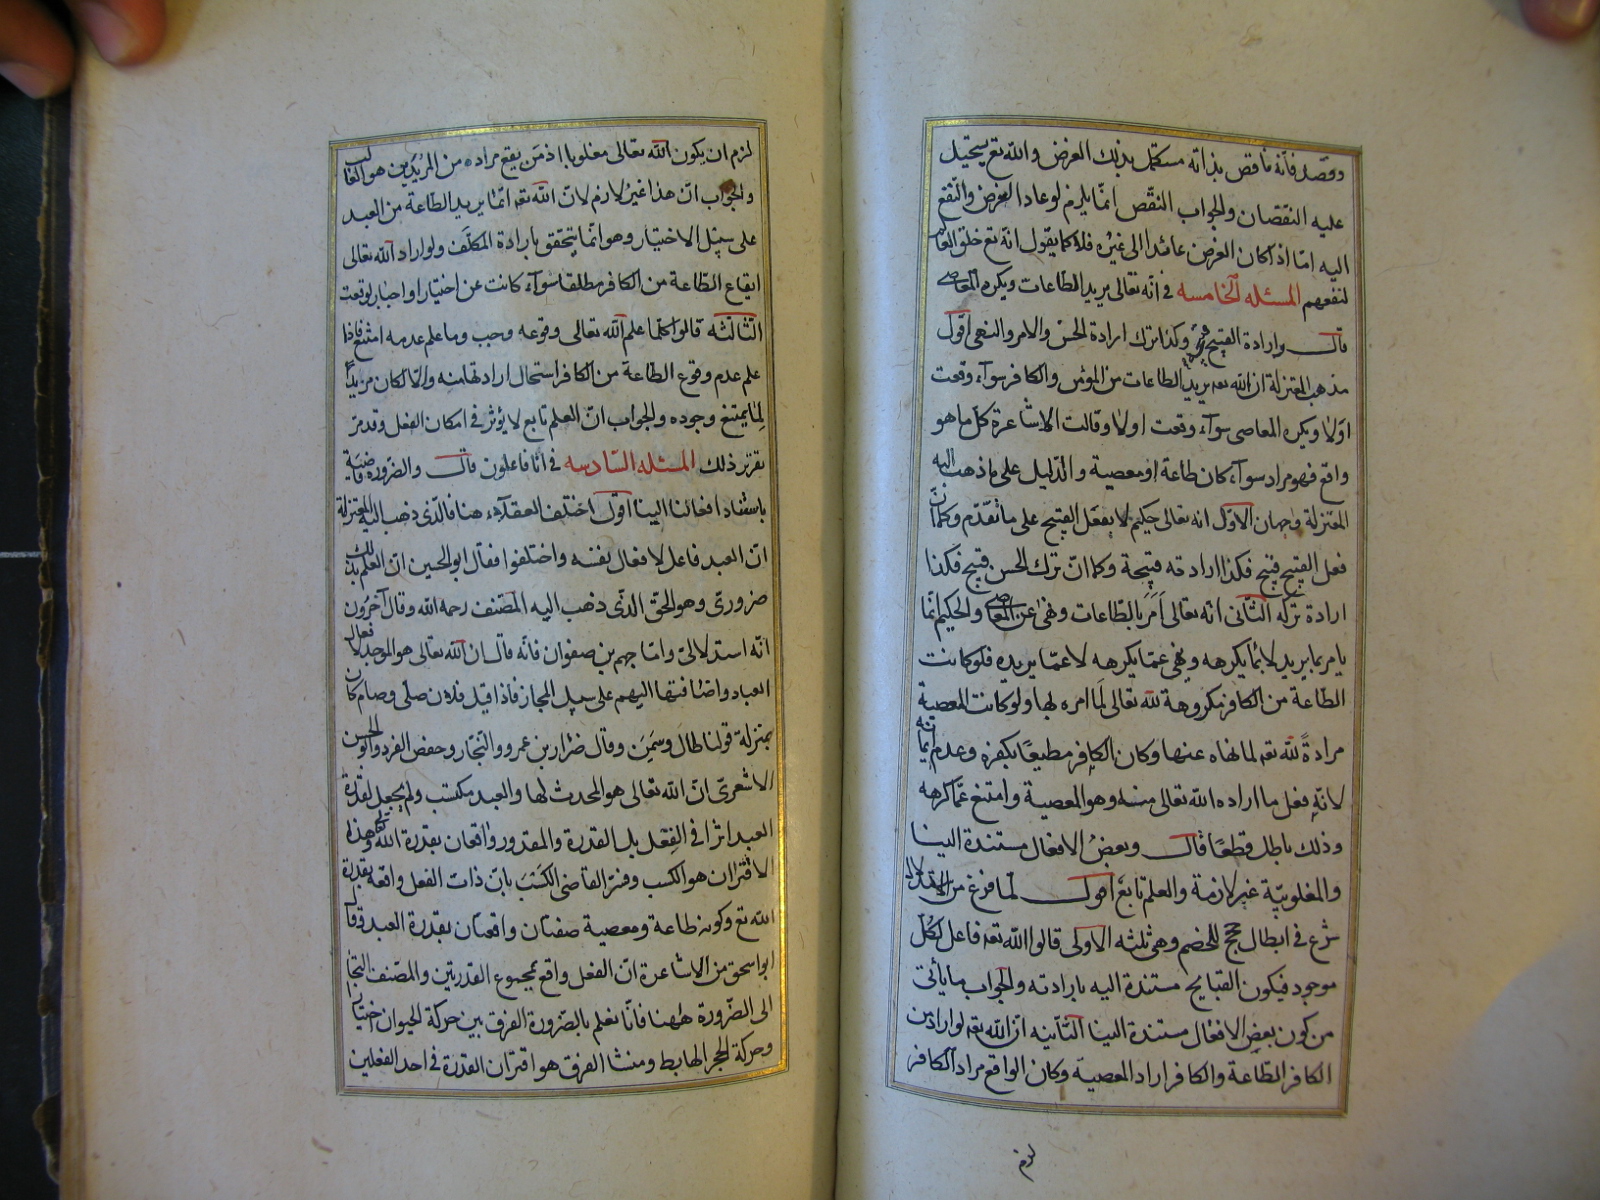 وقصد فانه ناقص بذاته مستكمل بذلك الغرض والله تع يستحيل
عليه النقصان والجواب النقص انما يلزم لو عاد الغرض والنفع
اليه امّا اذا كان الغرض عائدا الى غيره فلا كما يقول انه تع خلق العالم
لنفعهم المسئله الخامسه في انه تعالى يريد الطاعات ويكره المعاصي
قال وارادة القبيح قبيحة وكذا ترك ارادة الحسن والامر والنهى اقول
مذهب المعتزلة ان الله تعه يريد الطاعات من المؤمن والكافر سوآء وقعت
اولا ويكره المعاصى سوآء وقعت اولا وقالت الاشاعرة كلّ ما هو
واقع فهو مراد سوآء كان طاعة او معصية والدّليل على ما ذهب اليه
المعتزلة وجهان الاوّل انه تعالى حكيم لا يفعل القبيح على ما تقدّم وكما انّ
فعل القبيح قبيح فكذا ارادته قبيحة وكما انّ ترك الحسن قبيح فكذا
ارادة تركه الثّانى انه تعالى اَمَرَ بالطّاعات ونهى عن المعاصي والحكيم انّما
يامر بما يريد لا بما يكرهه وينهى عمّا يكرهه لا عمّا يريده فلو كانت
الطاعة من الكافر مكروهة لله تعالى لَما امره بها ولو كانت المعصية
مرادةً لله تعه لما نهاه عنها وكان الكافر مطيعًا بكفره وعدم ايمانه
لانّه فعل ما اراده الله تعالى منه وهو المعصية وامتنع عمّا كرهه
وذلك باطل قطعًا قال وبعضُ الافعال مستندة الينا
والمغلوبيّة غير لازمة والعلم تابعٌ اقول لمّا فرغ من الاستدلال
شرع في ابطال حجج للخصم وهى ثلثه الاولى قالوا الله تعه فاعل لكُلّ
موجود فيكون القبايح مستندة اليه بارادته والجواب ما يأتى
من كون بعض الافعال مستندة الينا الثّانيه انّ الله تعه لو اراد من
الكافر الطّاعة والكافر اراد المعصية وكان الواقع مراد الكافر
لزم
لزم ان يكون الله تعالى مغلوبا اذ مَن يقع مراده من المُريدَين هو الغالب
والجواب انّ هذا غيرُ لازم لانّ الله تعه انّما يريد الطاعة من العبد
على سبيل الاختيار وهو انّما يتحقق بارادة المكلّف ولو اراد الله تعالى
ايقاع الطّاعة من الكافر مطلقا سوآء كانت عن اختيار او اجبار لوقعت
الثّالثه قالوا كلّما علم الله تعالى وقوعه وجب وما علم عدمه امتنع فاذا
علم عدم وقوع الطّاعة من الكافر استحال ارادتها منه والّا لكان مريدًا
لِما يمتنع وجوده والجواب انّ العلم تابع لا يؤثر في امكان الفعل وقد مرّ
تقرير ذلك المسئله السّادسه في انّا فاعلون قال والضّرورة قاضية
باستناد افعالنا الينا اقول اختلف العقلآء هنا فالّذى ذهب اليه المعتزلة
انّ العبد فاعل لافعال نفسه واختلفوا فقال ابو الحسين انّ العلم بذلك
ضرورىّ وهو الحقّ الذّى ذهب اليه المصّنف رحمه الله وقال آخرُون
انّه استدلالىّ وامّا جهم بن صفوان فانّه قال ان الله تعالى هو الموجد لافعال
العباد واضافتها اليهم على سبيل المجاز فاذا قيل فلان صلّى وصام كان
بمنزلة قولنا طال وسَمِنَ وقال ضرار بن عمرو والنجّار وحفص الفرد وابو الحسن
الاشعرىّ انّ الله تعالى هو المحدث لها والعبد مكتسب ولم يجعل لقدرة
العبد اثرا في الفعل بل القدرة والمقدور واقعان بقدرة الله تع وهذا
الاقتران هو الكسب وفسّر القاضى الكَسْبَ بانّ ذات الفعل واقعة بقدرة
الله تع وكونه طاعة ومعصية صفتان واقعتان بقدرة العبد وقال
ابو اسحق من الاشاعرة انّ الفعل واقع بمجموع القدرتين والمصّنف التجا
الى الضّرورة ههنا فانّا نعلم بالضّرورة الفرق بين حركة الحيوان اختيارا
وحركة الحجر الهابط ومنشا الفرق هو اقتران القدرة في احد الفعلين